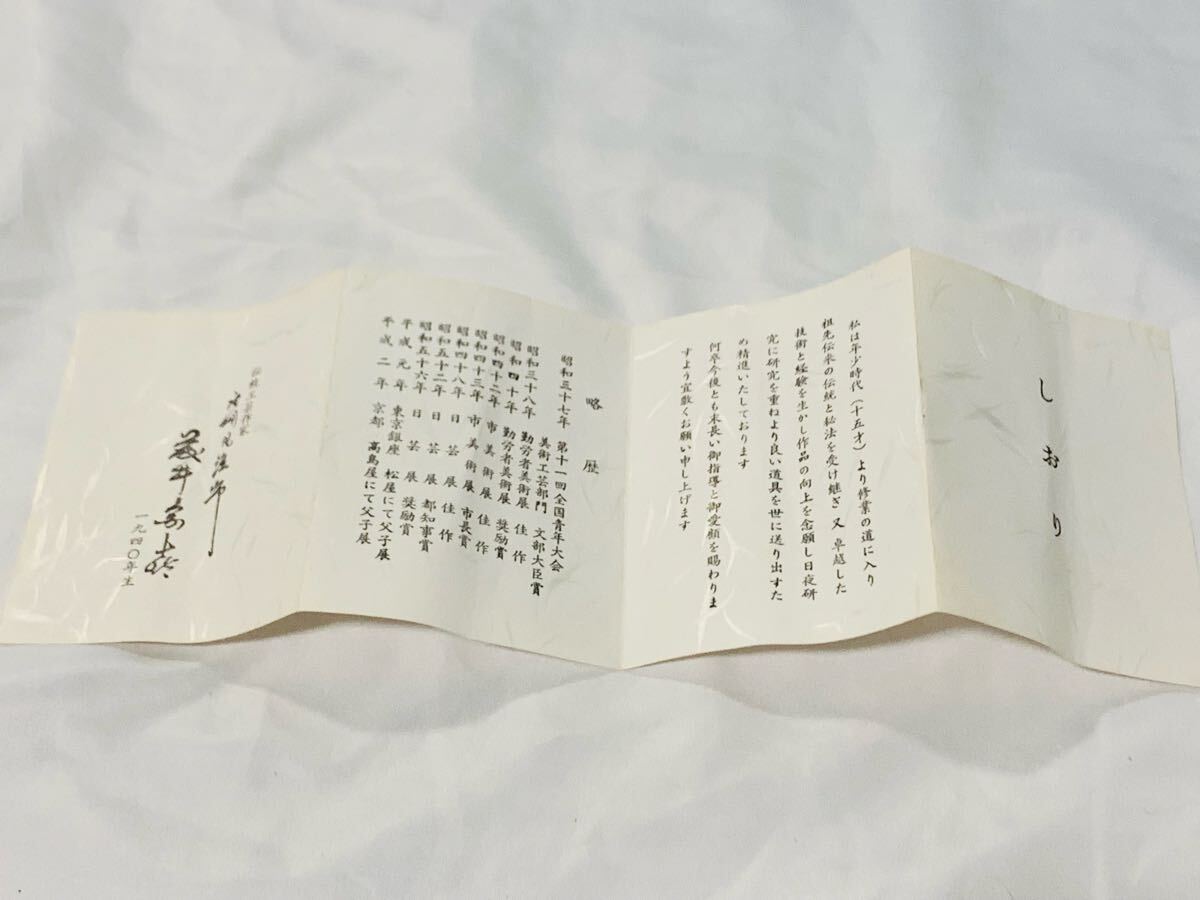 しおり
私は年少時代（十五才）より修業の道に入り
祖先伝来の伝統と秘法を受け継ぎ又卓越した
技術と経験を生かし作品の向上を念願し日夜研
究に研究を重ねより良い道具を世に送り出すた
め精進いたしております
何卒今後とも末長い御指導と御愛顧を賜わりま
すよう宜敷くお願い申し上げます
略歴
昭和三十七年 第十一回全国青年大会
美術工芸部門 文部大臣賞
昭和三十八年 勤労者美術展 佳作
昭和四十年 勤労者美術展 奨励賞
昭和四十二年 市美術展 佳作
昭和四十三年 市美術展 市長賞
昭和四十八年 日芸展 佳作
昭和五十二年 日芸展 都知事賞
昭和五十六年 日芸展 奨励賞
平成元年 東京銀座 松屋にて父子展
平成二年 京都 高島屋にて父子展
一九四〇年生